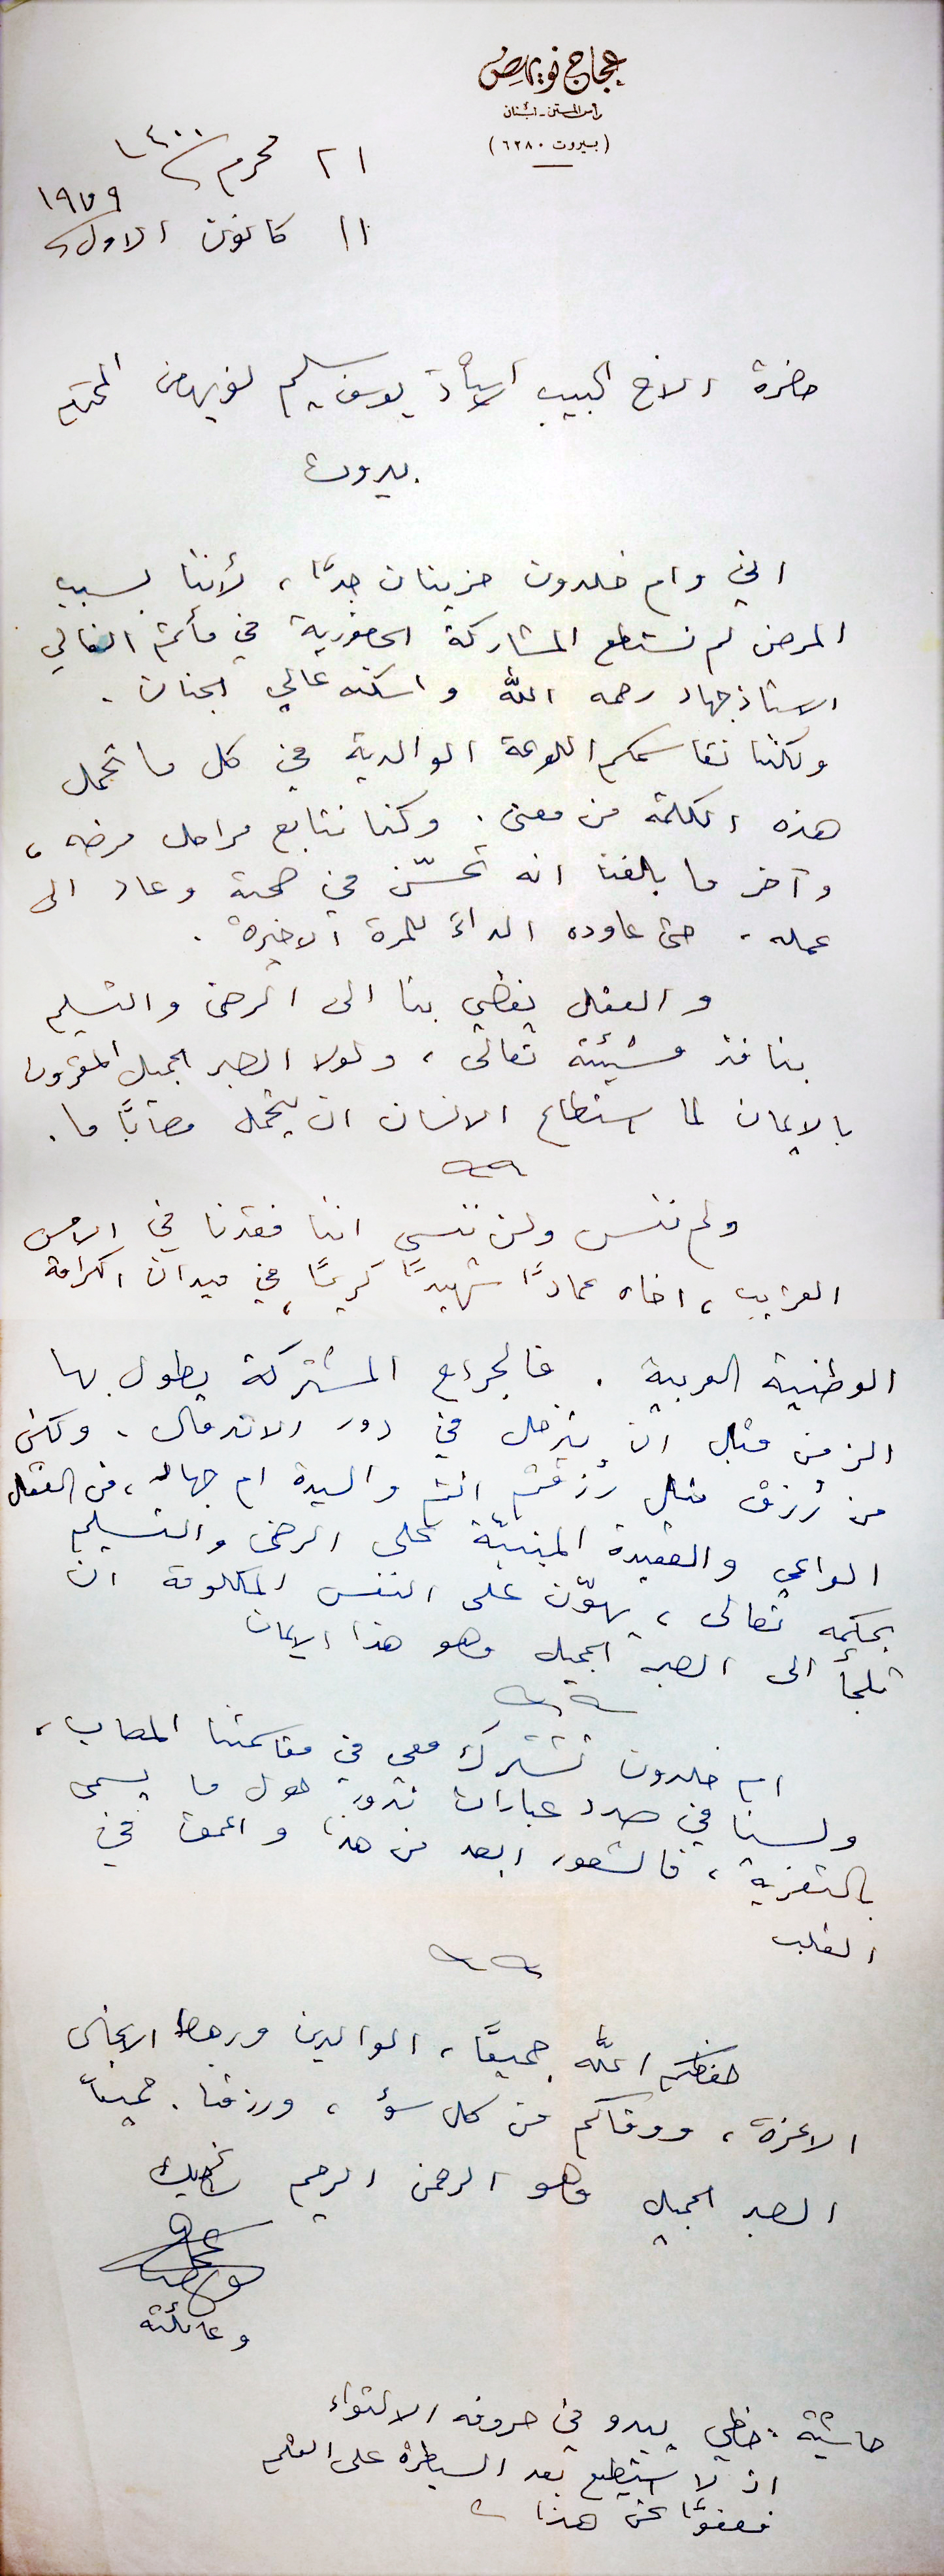 عجاج نويهض
رأس المتن - لبنان
(بيروت ٦٢٨٠)
٢١ محرم ١٤٠٠
١١ كانون الاول ١٩٧٩
حضرة الاخ الحبيب الاستاذ يوسف سليم نويهض المحترم
بيروت
اني وام خلدون حزينان جدًّا، لأننا بسبب
المرض لم نستطع المشاركة الحضورية في مأتم الغالي
الاستاذ جهاد رحمه الله واسكنه عالي الجنان.
ولكننا نقاسمكم اللوعة الوالدية في كل ما تحمل
هذه الكلمة من معنى. وكنا نتابع مراحل مرضه،
وآخر ما بلغنا انه تحسّن في صحته وعاد الى
عمله، حتى عاوده الداء للمرة الاخيرة.
والعقل يفضي بنا الى الرضى والتسليم
بنافذ مشيئته تعالى، ولولا الصبر الجميل المقرون
بالايمان لما استطاع الانسان ان يتحمل مصابًا ما.
ولم ننس ولن ننسى اننا فقدنا في الامس
القريب، اخاه عمادًا شهيدًا كريمًا في ميدان الكرامة
الوطنية العربية. فالجراح المشتركة يطول بها
الزمن قبل ان تدخل في دور الاندمال. ولكن
من رُزق مثل رُزقتم انتم والسيدة ام جهاد، من العقل
الواعي والعقيدة المنبنية على الرضى والتسليم
بحكمه تعالى، يهوّن على النفس المكلومة ان
تلجأ الى الصبر الجميل وهو هذا الايمان
ام خلدون تشترك معي في مقاسمتنا المصاب،
ولسنا في صدد عبارات تدور حول ما يسمى
بالتعزية، فالشعور ابعد من هذا واعمق في
القلب
حفظكم الله جميعًا، الوالدين ورهط الانجال
الاعزة، ووقاكم من كل سؤ، ورزقنا جميعًا
الصبر الجميل وهو الرحمن الرحيم لاخيك
عجاج نويهض
وعائلته
حاشية. خطي يبدو في حروفه الالتواء
اذ لا استطيع بعد السيطرة على القلم
فعفوًا عن هذا